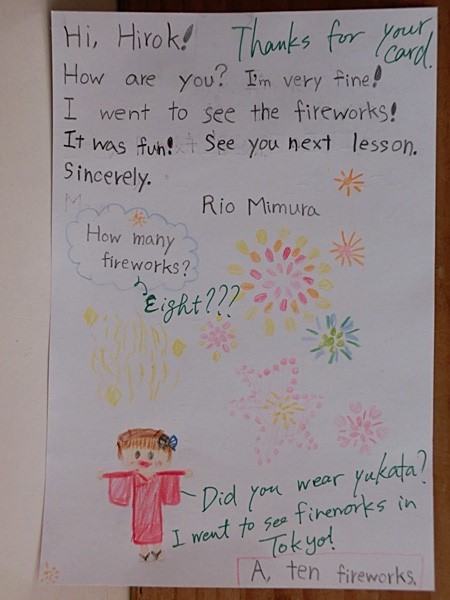 Hi, Hirok!
Thanks for your
card.
How are you? I'm very fine!
I went to see the fireworks!
It was fun! See you next lesson.
Sincerely.
Rio Mimura
How many
fireworks?
Eight???
Did you wear yukata?
I went to see fireworks in
Tokyo!
A, ten fireworks.